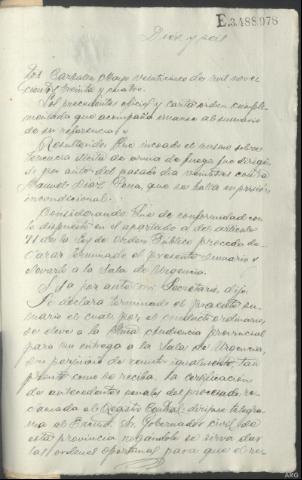 E3488,978
Diez y seis
veinticinco de mil nove
cientos treinta y cuatro.
Los precedentes oficio y carta orden cumpli
mentada que acompaña únanse al sumario
de su referencia y
Resultando: Que incoado el mismo sobre
tenencia ilícita de arma de fuego fue dirigi
do por auto del pasado día veintidos contra
Manuel Díaz Pena, que se halla en prisión
incondicional:
Considerando: Que de conformidad con
lo dispuesto en el apartado a del artículo
71 de la Ley de Orden Público procede de-
clarar terminado el presente sumario y
elevarlo a la Sala de Urgencia.
S. Sª por ante mi Secretario, dijo:
Se declara terminado el presente su-
mario el cual por el conducto ordinario,
se eleve a la Ilma Audiencia provincial
para su entrega a la Sala de Urgencia,
sin perjuicio de remitir igualmente, tan
pronto como se reciba, la certificación
de antecedentes penales del procesado, re-
clamada al Registro Central; diríjase telegra-
ma al Excmo. Sr. Gobernador civil de
esta provincia rogándole se sirva dar
las órdenes oportunas para que el re-
ARG